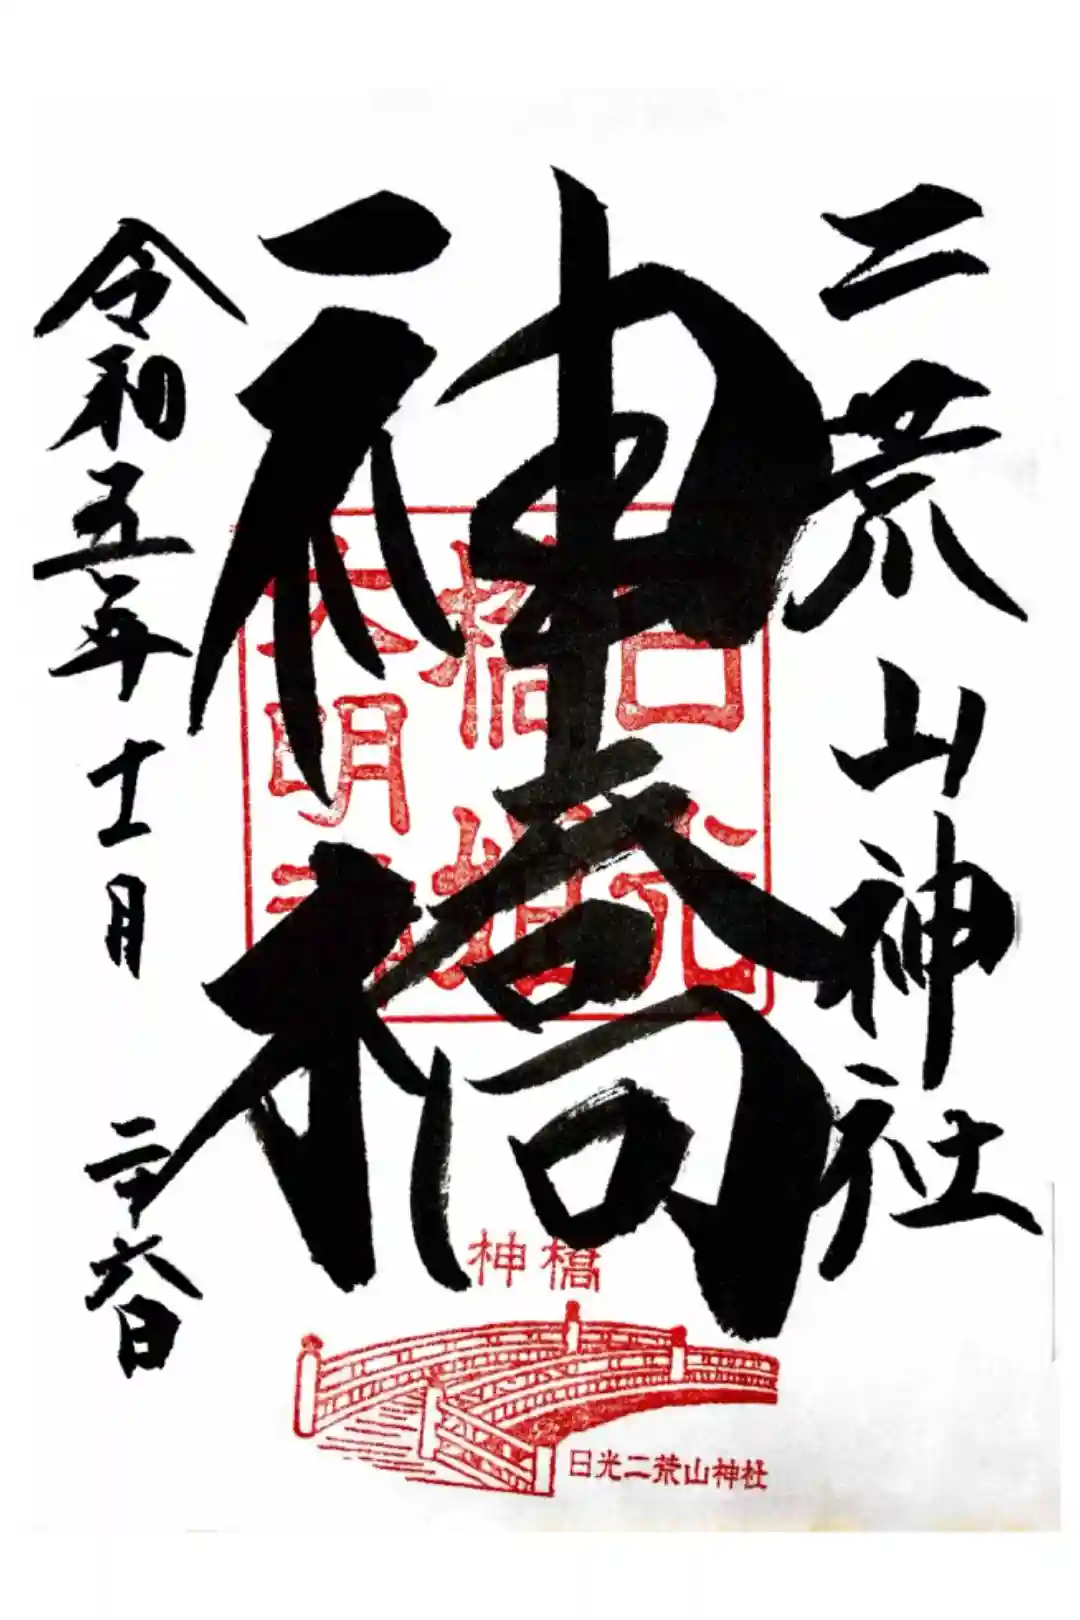 二荒山神社
神橋
令和五年十一月二十六日
日光
橋姫
大明神
神橋
日光二荒山神社